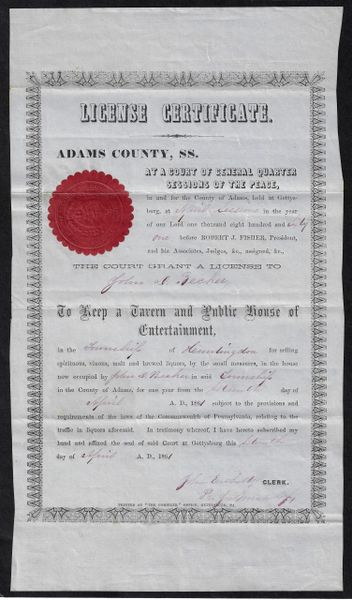 LICENSE CERTIFICATE.
ADAMS COUNTY, SS.
AT A COURT OF GENERAL QUARTER
SESSIONS OF THE PEACE,
in and for the County of Adams, held at Gettys-
burg, at April Sessions in the year
of our Lord one thousand eight hundred and sixty
one before ROBERT J. FISHER, President,
and his Associates, Judges, &c., assigned, &c.,
THE COURT GRANT A LICENSE TO
John A
To Keep a Tavern and Public House of
Entertainment,
in the Township of Huntingdon for selling
spirituous, vinous, malt and brewed liquors, by the small measure, in the house
now occupied by John A in said Township
in the County of Adams, for one year from the day of
April A. D., 1861 subject to the provisions and
requirements of the laws of the Commonwealth of Pennsylvania, relating to the
traffic in liquors aforesaid. In testimony whereof, I have hereto subscribed my
hand and affixed the seal of said Court at Gettysburg this
day of April A. D., 1861
John CLERK.
PRINTED AT "THE COMPILER" OFFICE, GETTYSBURG, PA.